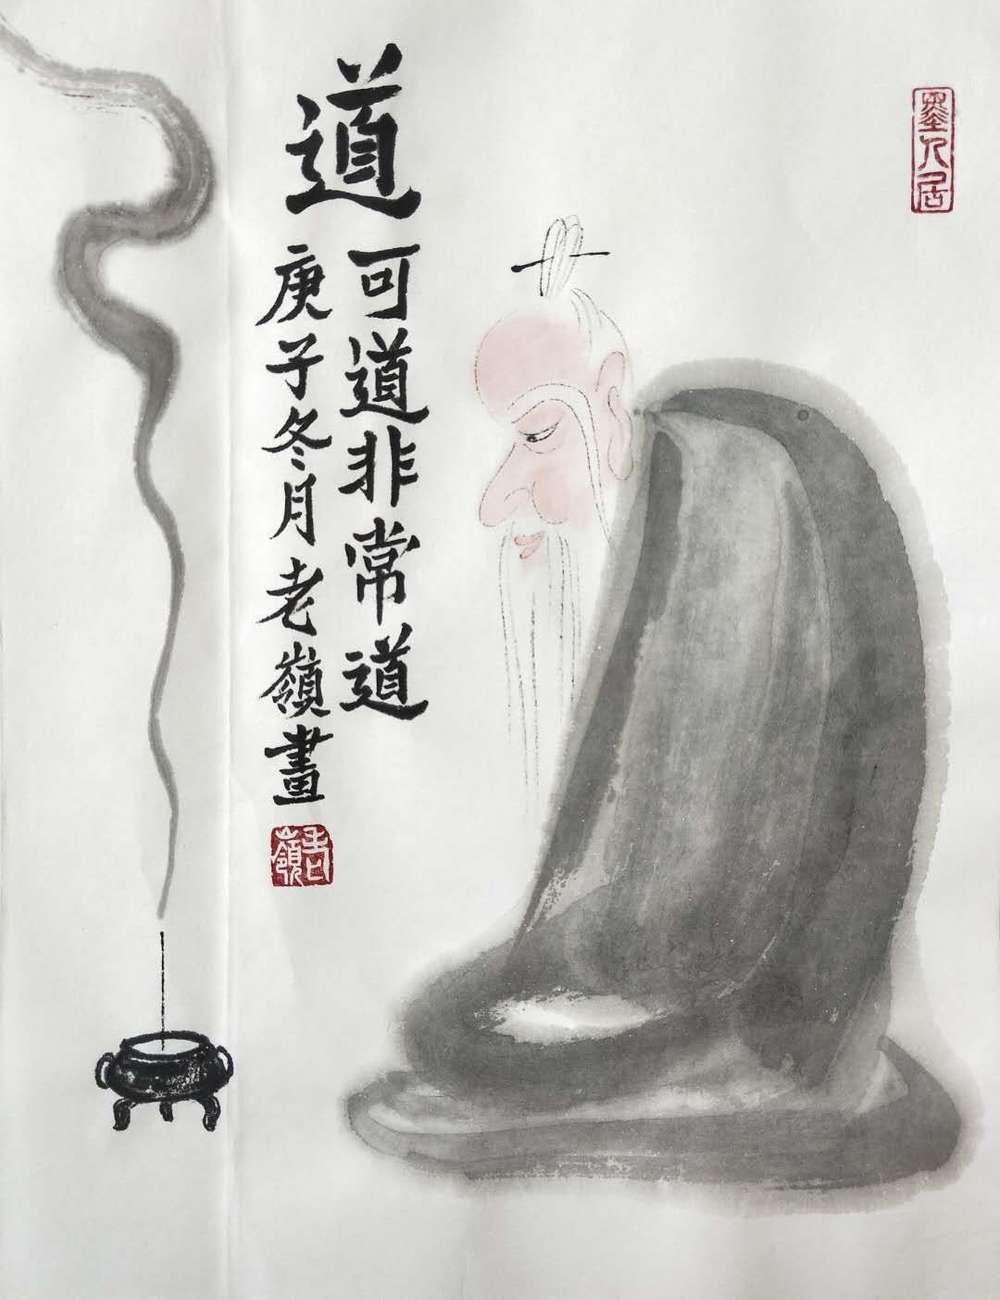 道可道非常道
庚子冬月老嶺畫
老嶺
墨人居